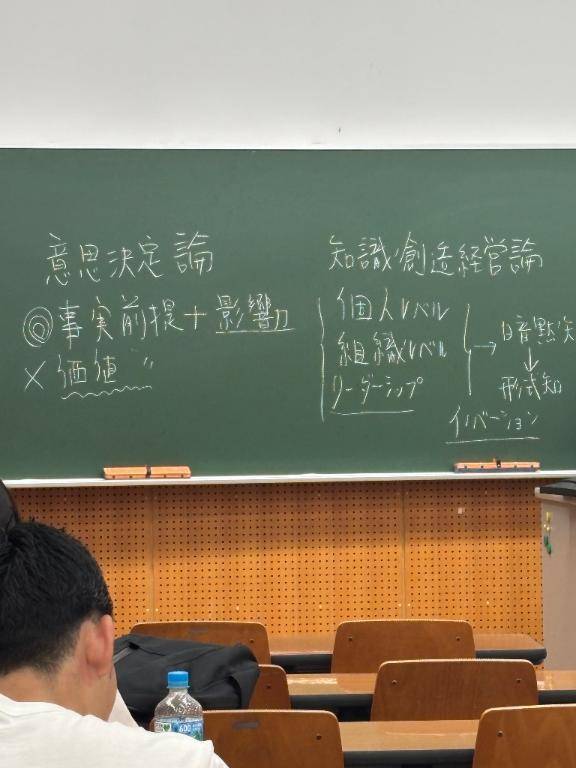 意思決定論
◎事実前提＋影響力
×価値 〃
知識創造経営論
個人レベル
組織レベル
リーダーシップ
→暗黙知
↓
形式知
イノベーション
600